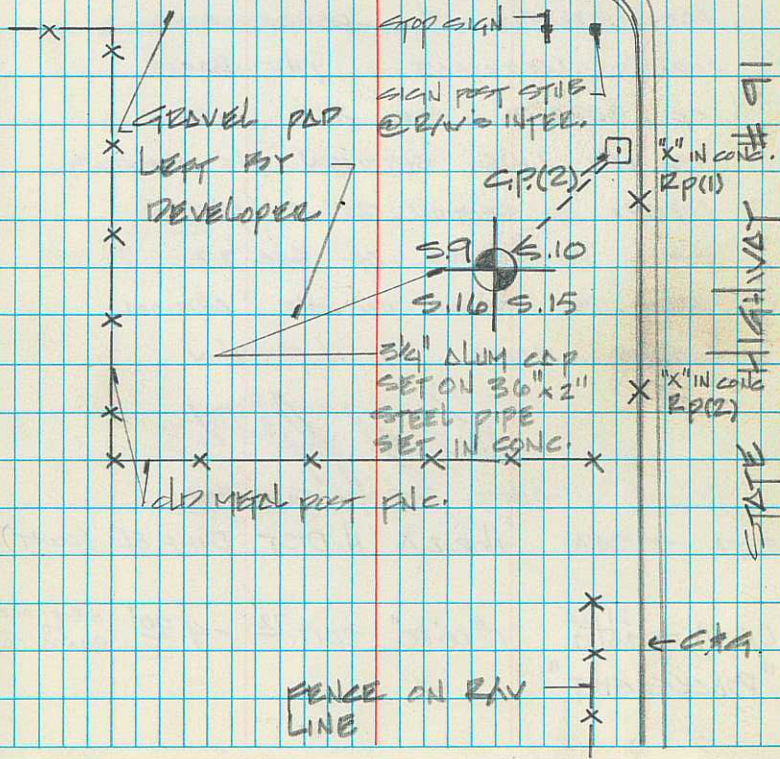 STOP SIGN
SIGN POST STUB
@ R/W & INTER.
GRAVEL PAD
LEFT BY
DEVELOPER
C.P.(2)
"X" IN CONC.
R.P.(1)
STATE HIGHWAY # 91
S.9 S.10
S.16 S.15
3¼" ALUM CAP
SET ON 36"x2"
STEEL PIPE
SET IN CONC.
"X" IN CONC
R.P.(2)
OLD METAL POST FNC.
C&G.
FENCE ON R/W
LINE